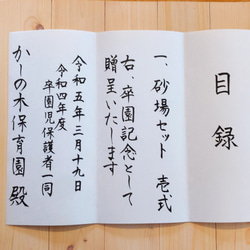 目録
一、砂場セット 壱式
右、卒園記念として
贈呈いたします
令和五年三月十九日
令和四年度
卒園児保護者一同
かしの木保育園 殿